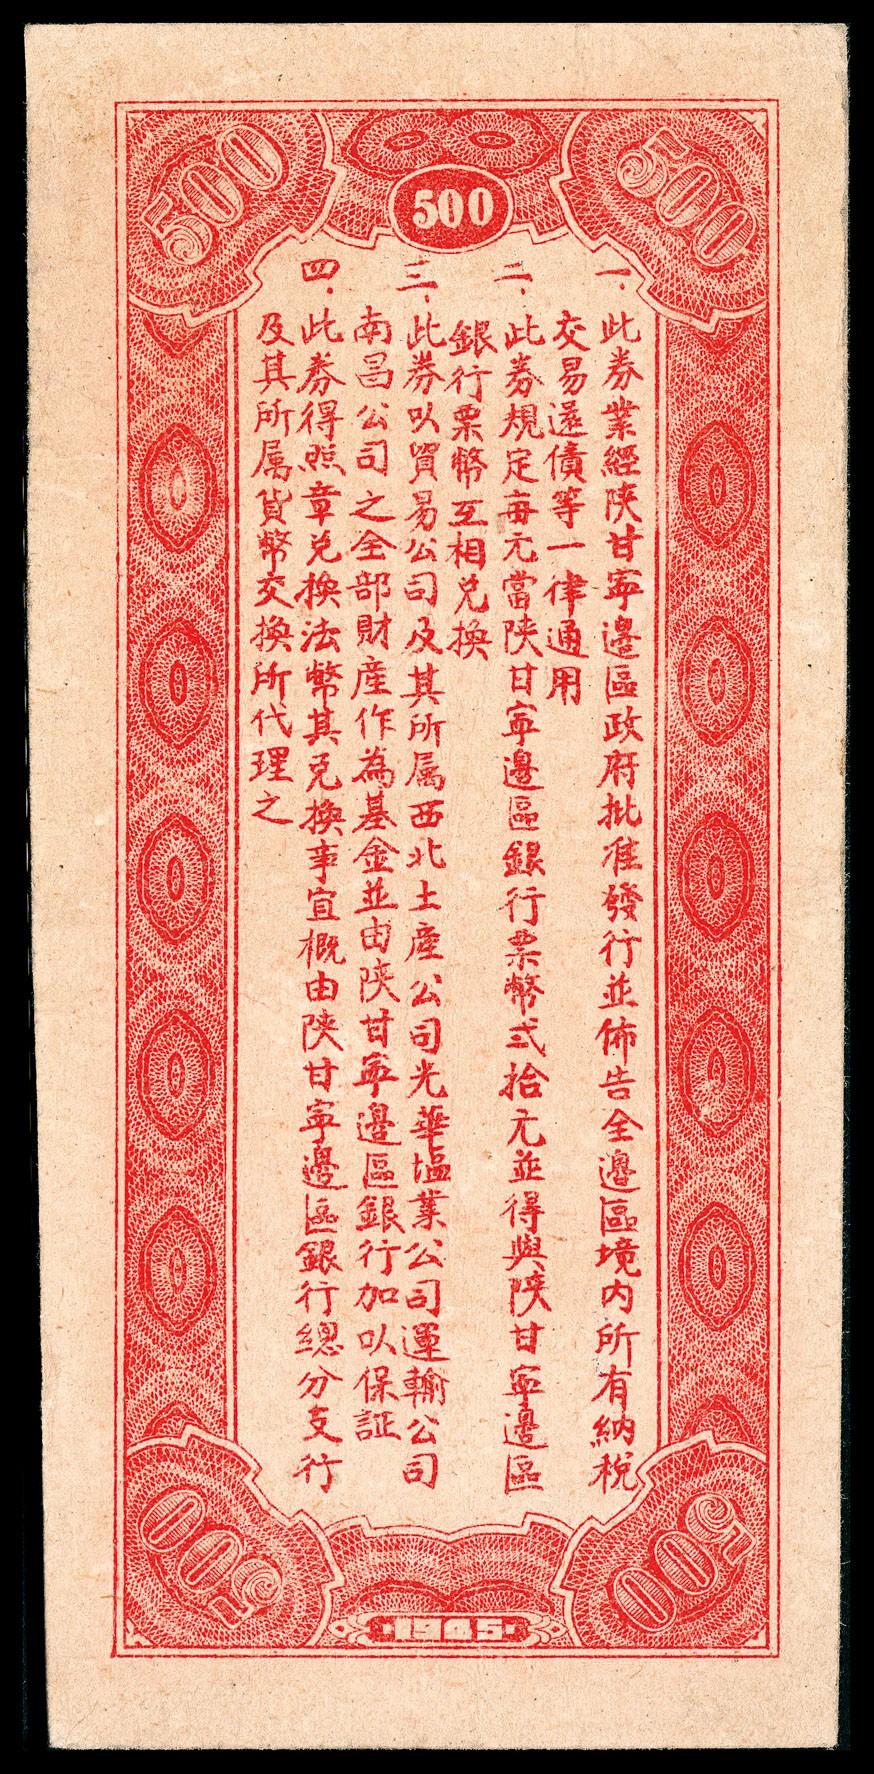 500
500
500
一、此券業經陝甘寧邊區政府批准發行並佈告全邊區境内所有納稅
交易還債等一律通用
二、此券規定每元當陝甘寧邊區銀行票幣弍拾元並得與陝甘寧邊區
銀行票幣互相兑換
三、此券以貿易公司及其所属西北土産公司光華塩業公司運輸公司
南昌公司之全部財産作為基金並由陝甘寧邊區銀行加以保証
四、此券得照章兑換法幣其兑換事宜概由陝甘寧邊區銀行總分支行
及其所属貨幣交換所代理之
500
500
1945